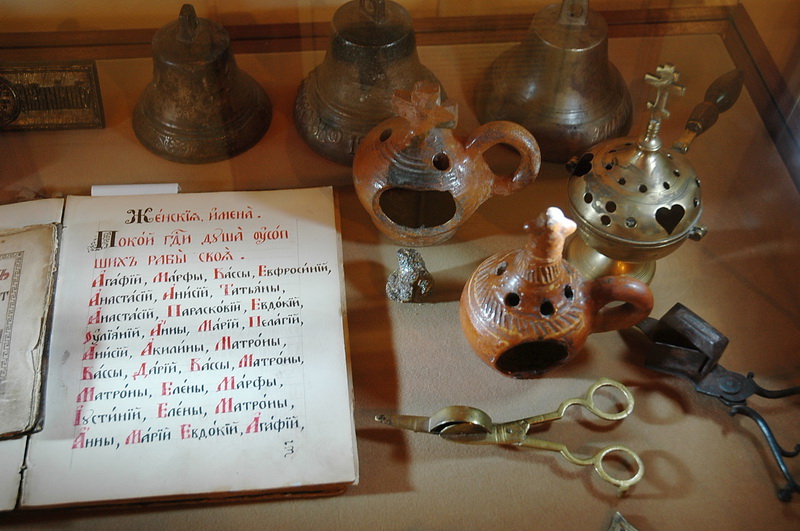 Же́нскїѧ, и҆мена̀.
Поко́й гдⷭ҇и дꙋша̀ ᲂу҆со́п
шихъ ра́бъ своѧ̀.
А҆га́фїй, Ма́рфы, Ка́ссы, Е҆ѵфроси́нїй,
А҆наста́сїй, А҆ни́сїй, Татьѧ́ны,
А҆наста́сїй, Параско́вїй, Е҆ѵдо́кїй,
І҆ꙋлїа́нїй, А҆́нны, Марі́й, Пела́гїй,
А҆ни́сїй, А҆кили́ны, Матро́ны,
Ка́ссы, Да́рїй, Ка́ссы, Матро́ны,
Матро́ны, Е҆ле́ны, Ма́рфы,
І҆ꙋсти́нїй, Е҆ле́ны, Матро́ны,
А҆́нны, Марі́й Е҆ѵдо́кїй, А҆га́фїй,